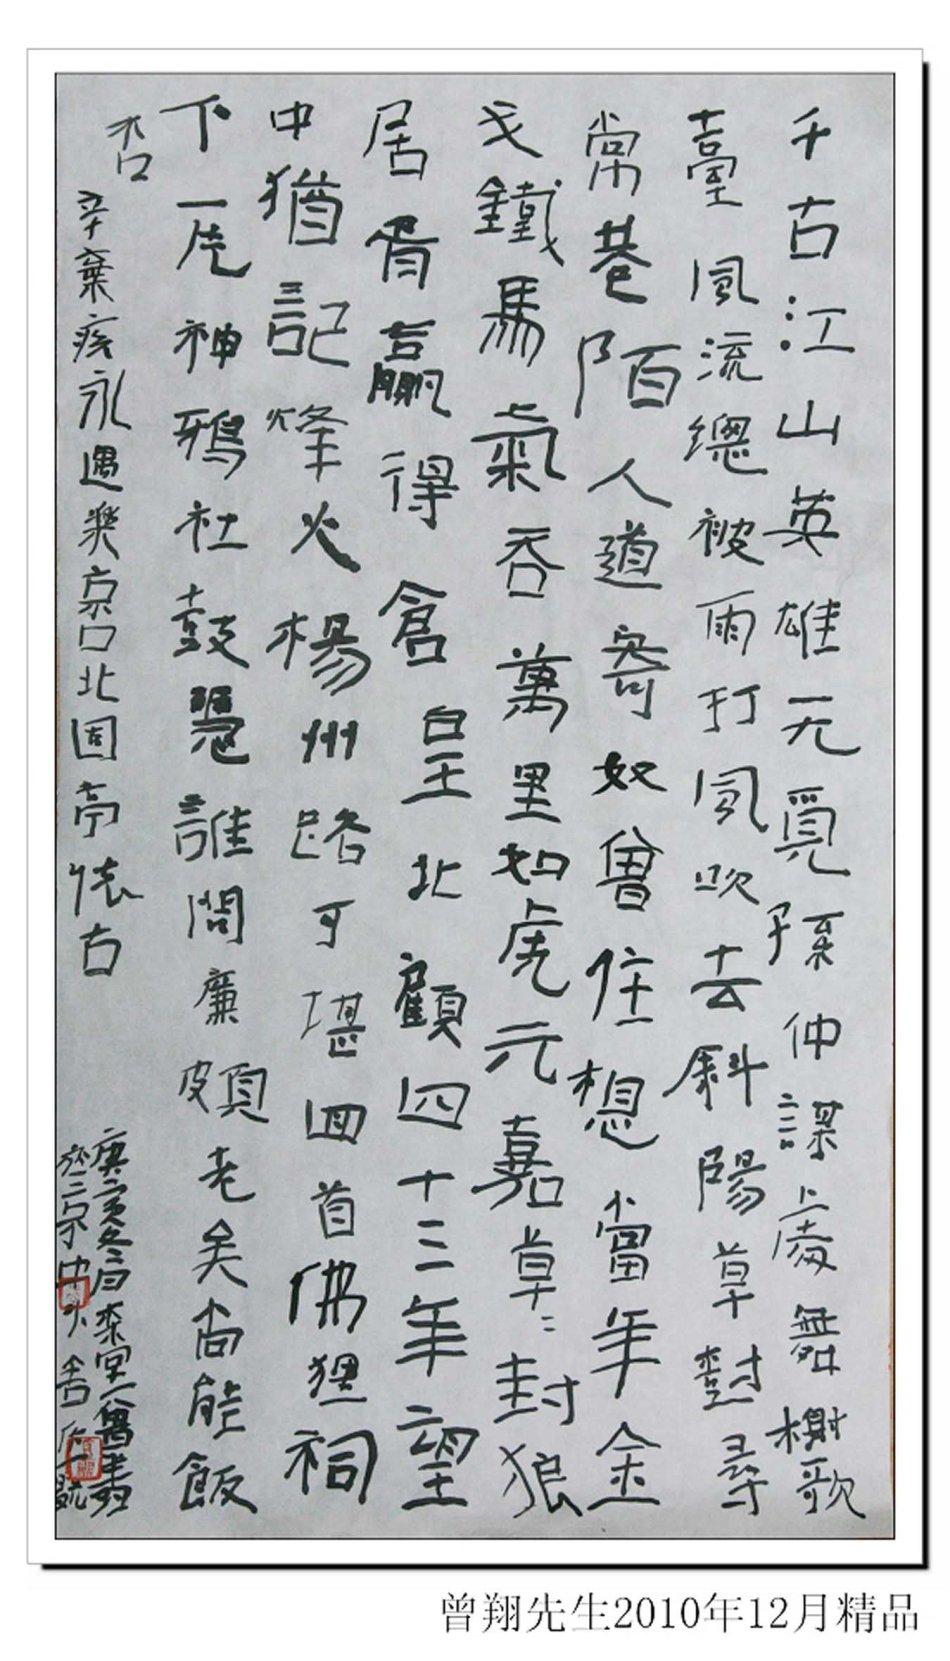 千古江山英雄无覓孫仲謀處舞榭歌
臺風流總被雨打風吹去斜陽草樹尋
常巷陌人道寄奴曾住想當年金
戈鐵馬氣吞萬里如虎元嘉草:封狼
居胥贏得倉皇北顧四十三年望
中猶記烽火楊州路可堪回首佛狸祠
下一片神鴉社鼓憑誰問廉頗老矣尚能飯
否
辛棄疾永遇樂京口北固亭懷古
庚寅冬月
曾翔先生2010年12月精品